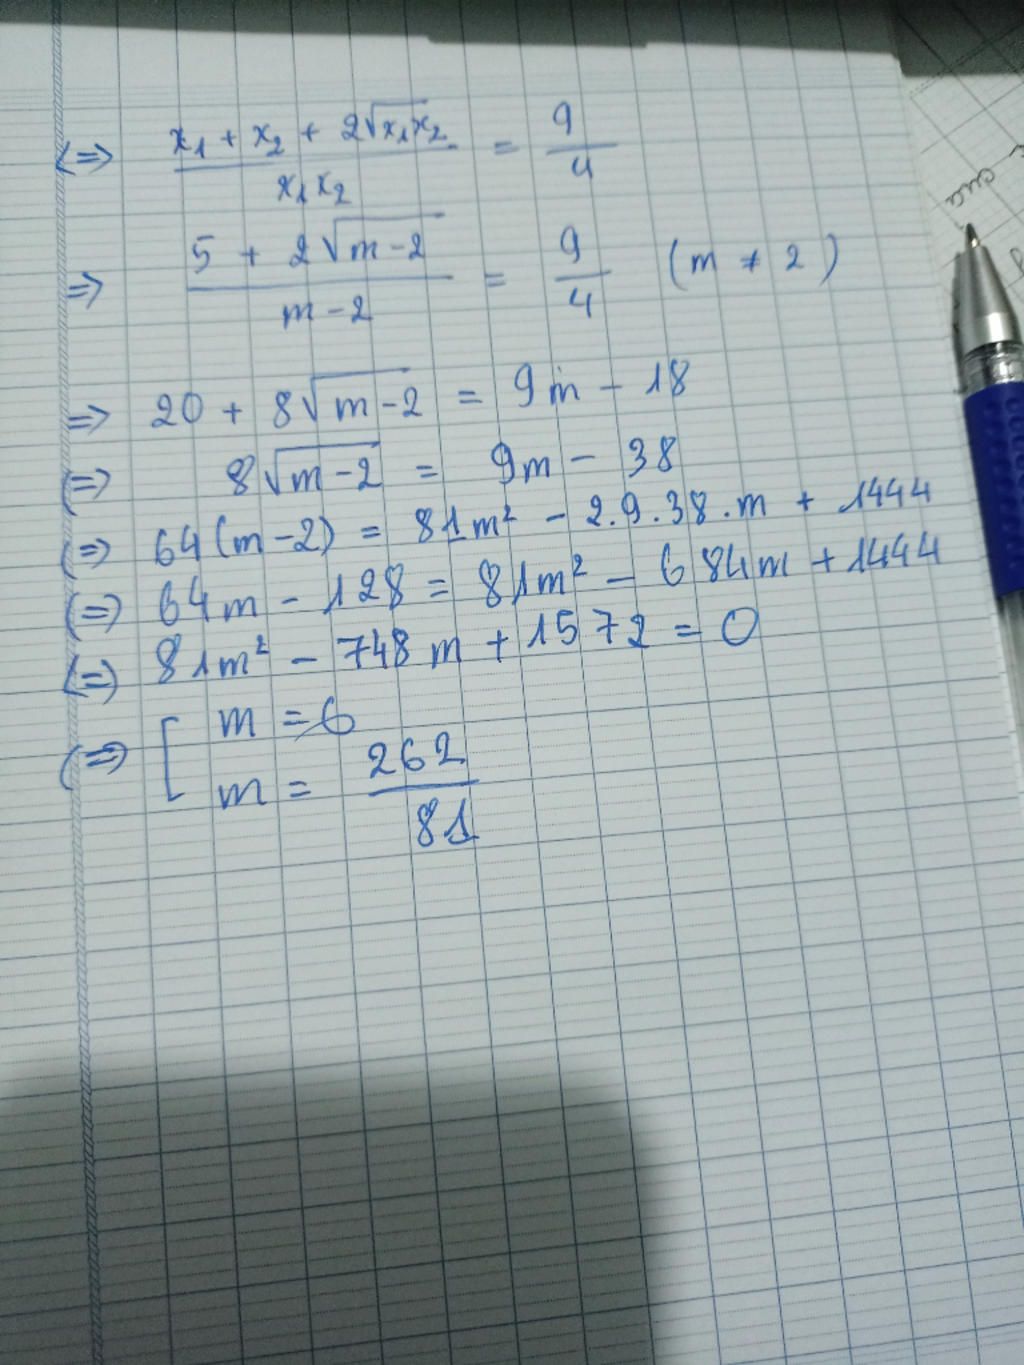 <=> x₁ + x₂ + 2√x₁x₂ / x₁x₂ = 9/4
=> 5 + 2√m-2 / m-2 = 9/4 (m ≠ 2)
=> 20 + 8√m-2 = 9m - 18
<=> 8√m-2 = 9m - 38
<=> 64(m-2) = 81m² - 2.9.38.m + 1444
<=> 64m - 128 = 81m² - 684m + 1444
<=> 81m² - 748m + 1572 = 0
<=> [ m = 6
m = 262/81